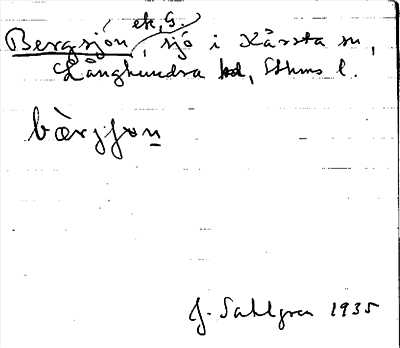 ek, G.
Bergsjön, sjö i Kårsta sn,
Långhundra hd, Sthms l.
bærjʃon
J. Sahlgren 1935